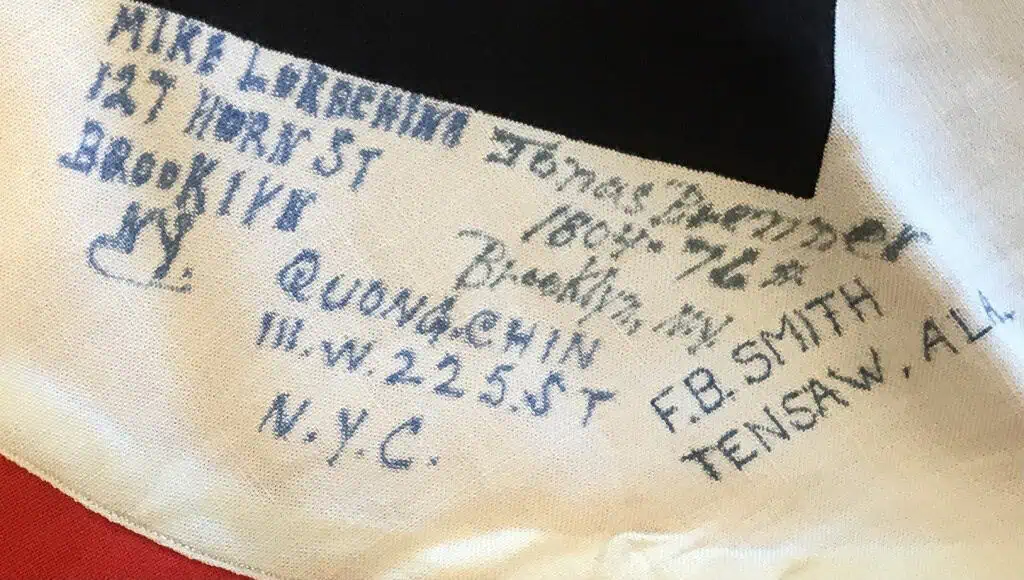 MIKE LOROCHINA
127 HORN ST
BROOKLYN
NY.
Jonas Bremner
1804-76 St
Brooklyn, NY
QUONG.CHIN
111.W.225.ST
N.Y.C.
F.B. SMITH
TENSAW, ALA.